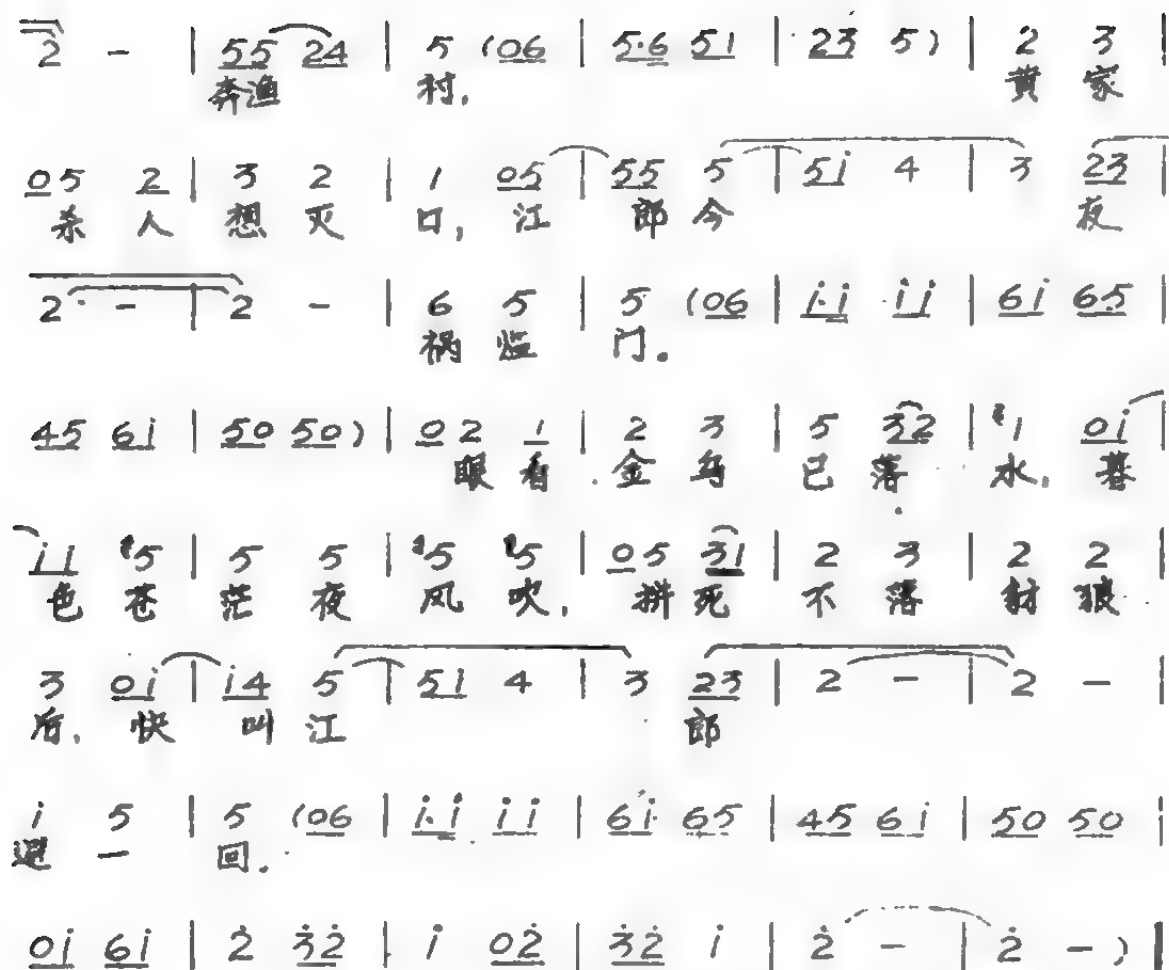 2 - | 55 24 | 5 (06 | 5·6 51 | 23 5) | 2 3 |
奔渔 村. 黄 家
05 2 | 3 2 | 1 05 | 55 5 | 5i 4 | 3 23
杀 人 想 灭 口, 江 郎 今 夜
2· - | 2 - | 6 5 | 5 (06 | i·i ii | 6i 65 |
祸 临 门.
45 6i | 50 50) | 02 1 | 2 3 | 5 32 | 1 0i |
眼 看 金 乌 已 落 水, 暮
i1 5 | 5 5 | 5 5 | 05 31 | 2 3 | 2 2 |
色 苍 茫 夜 风 吹, 拼 死 不 落 豺 狼
3 0i | i4 5 | 51 4 | 3 23 | 2 - | 2 - |
后, 快 叫 江 郎
i 5 | 5 (06 | i·i ii | 6i 65 | 45 6i | 50 50 |
避 一 回.
0i 6i | 2̇ 3̇2̇ | i 02̇ | 3̇2̇ i | 2̇ - | 2̇ - ) ‖